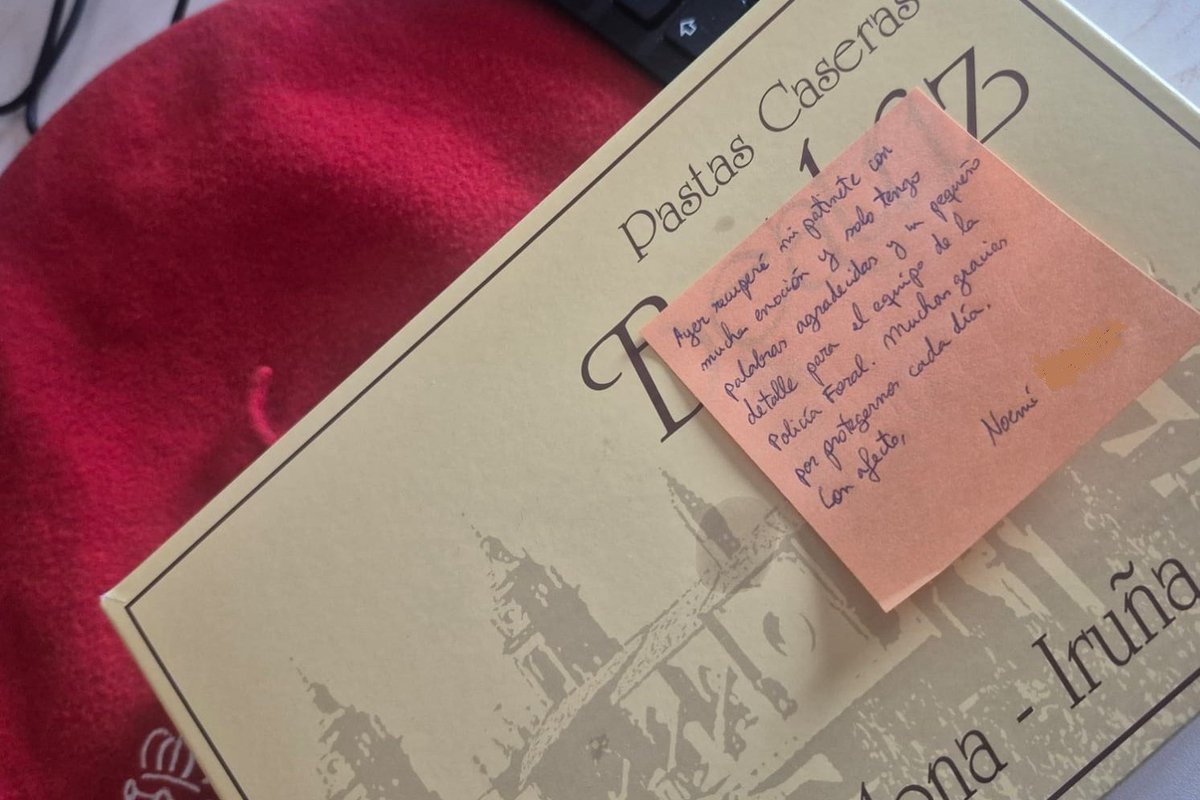 Pastas Caseras
Ayer recuperé mi patinete con
mucha emoción y solo tengo
palabras agradecidas y un pequeño
detalle para el equipo de la
Policía Foral. Muchas gracias
por protegernos cada día.
Con afecto,
Noemí
- Iruña